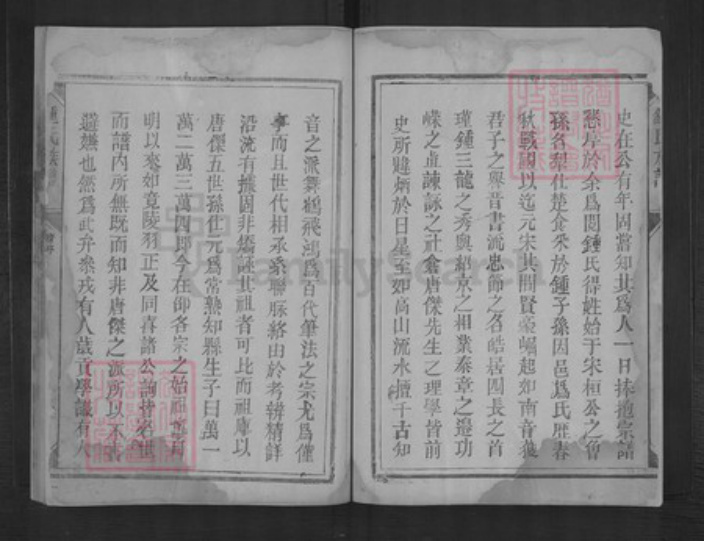 史在公有年固嘗知其爲人一日捧揸宗譜
懇序於余爲閱鍾氏得姓始于宋桓公之曾
孫名犁仕楚食采於鍾子孫因邑爲氏歷春
秋戰國以迄元宋其間賢豪崛起如南音獲
君子之與晉書流忠節之名皓居四長之首
瑾鍾三龍之秀與紹京之相業泰章之邊功
嶸之直諫詠之社倉唐傑先生之理學皆前
史所贉炳於日星至如高山流水擅千古知
音之派舞鶴飛鴻爲百代筆法之宗尤爲僅
事而且世代相承系聯脉絡由於考辨精詳
沿流有據固非矯誣其祖者可比而祖庫以
唐傑五世孫仕元爲常熟知縣生子曰萬一
萬二萬三萬四即今在邵各宗之始祖
明以來如竟陵羽正及同喜諸公詢皆名世
而譜內所無既而知非唐傑之派所以不書
避嫌也無爲武弁叅戎有人歲貢學諭有人
FamilySearch